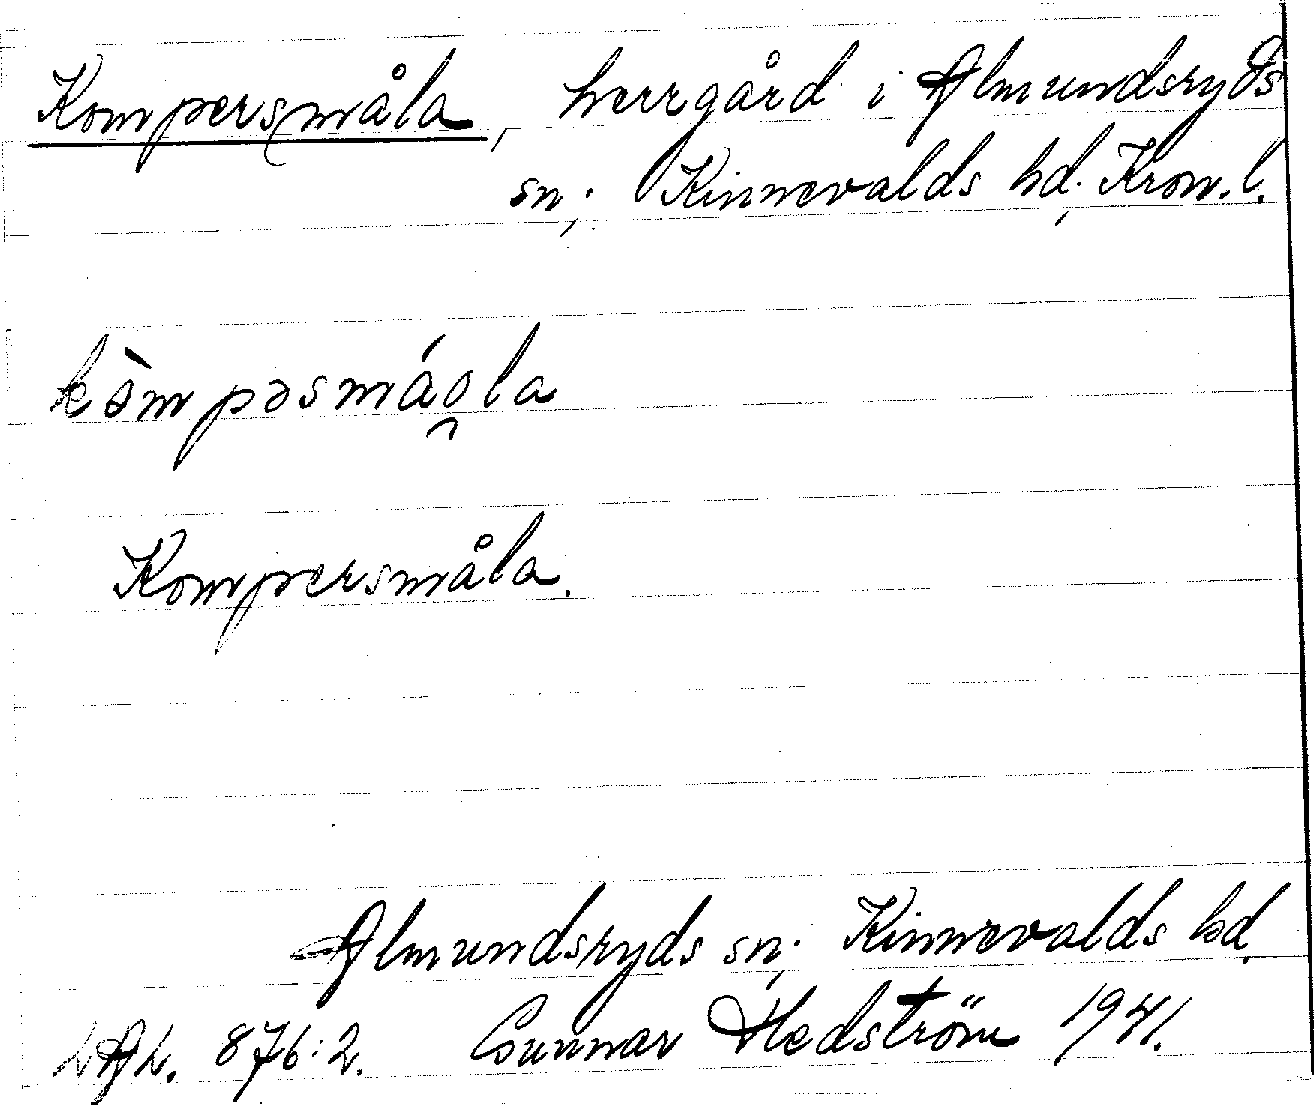 Kompersmåla, herrgård i Almundsryds
sn; Kinnevalds hd; Kron.l.
kòmpəsmáo̯la
Kompersmåla.
Almundsryds sn; Kinnevalds hd.
LAL. 876:2. Gunnar Hedström 1941.